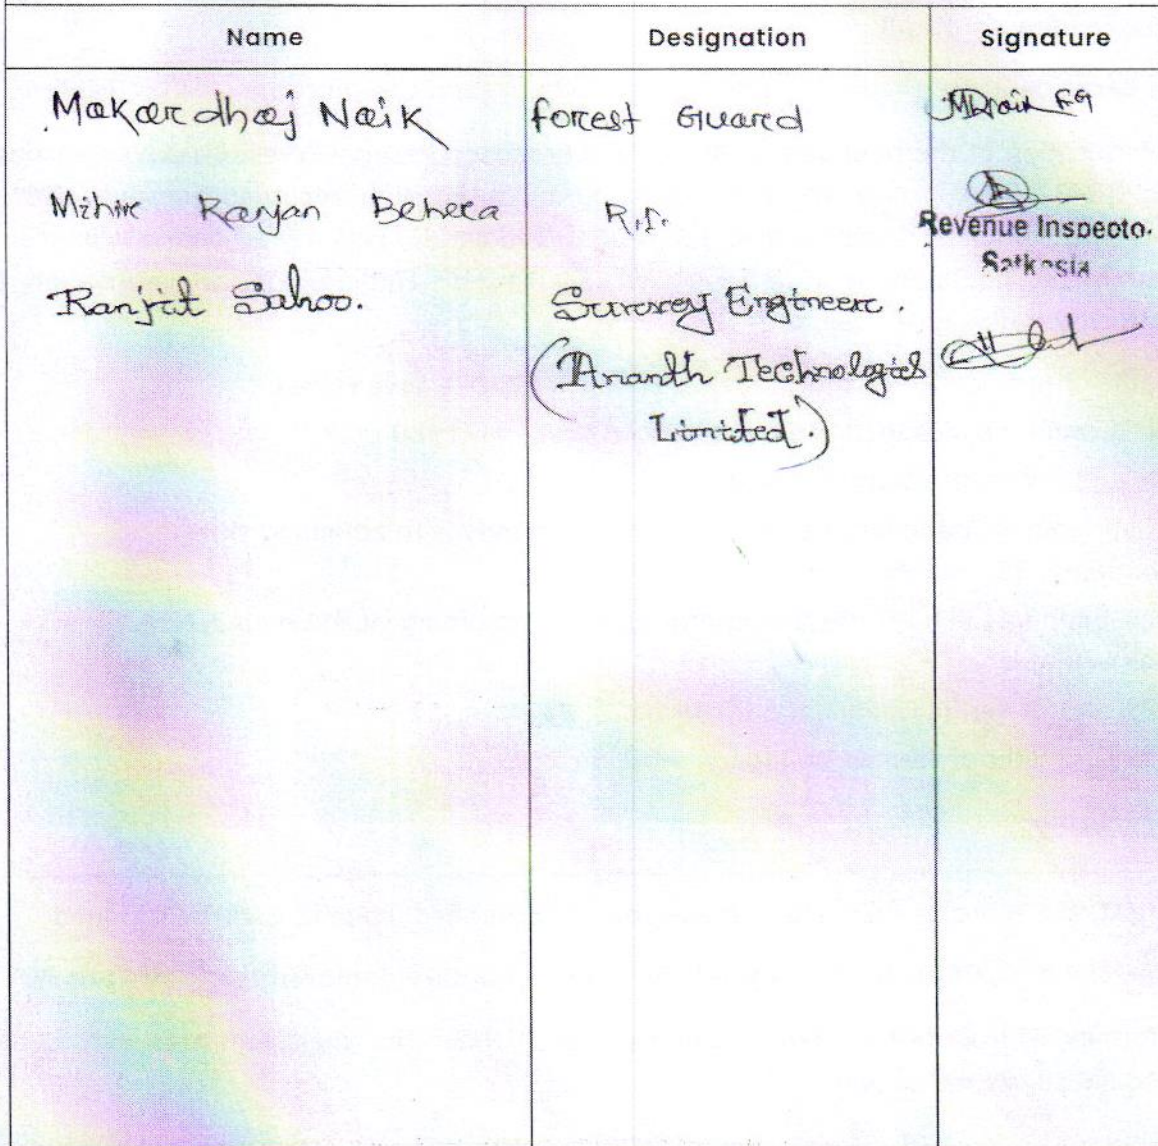 Name Designation Signature
Makardhaj Naik forest Guard MDNaik FG
Mihir Ranjan Behera R.I.
Revenue Inspecto.
Satkosia
Ranjit Sahoo. Survey Engineer.
(Ananth Technologies
Limited.)